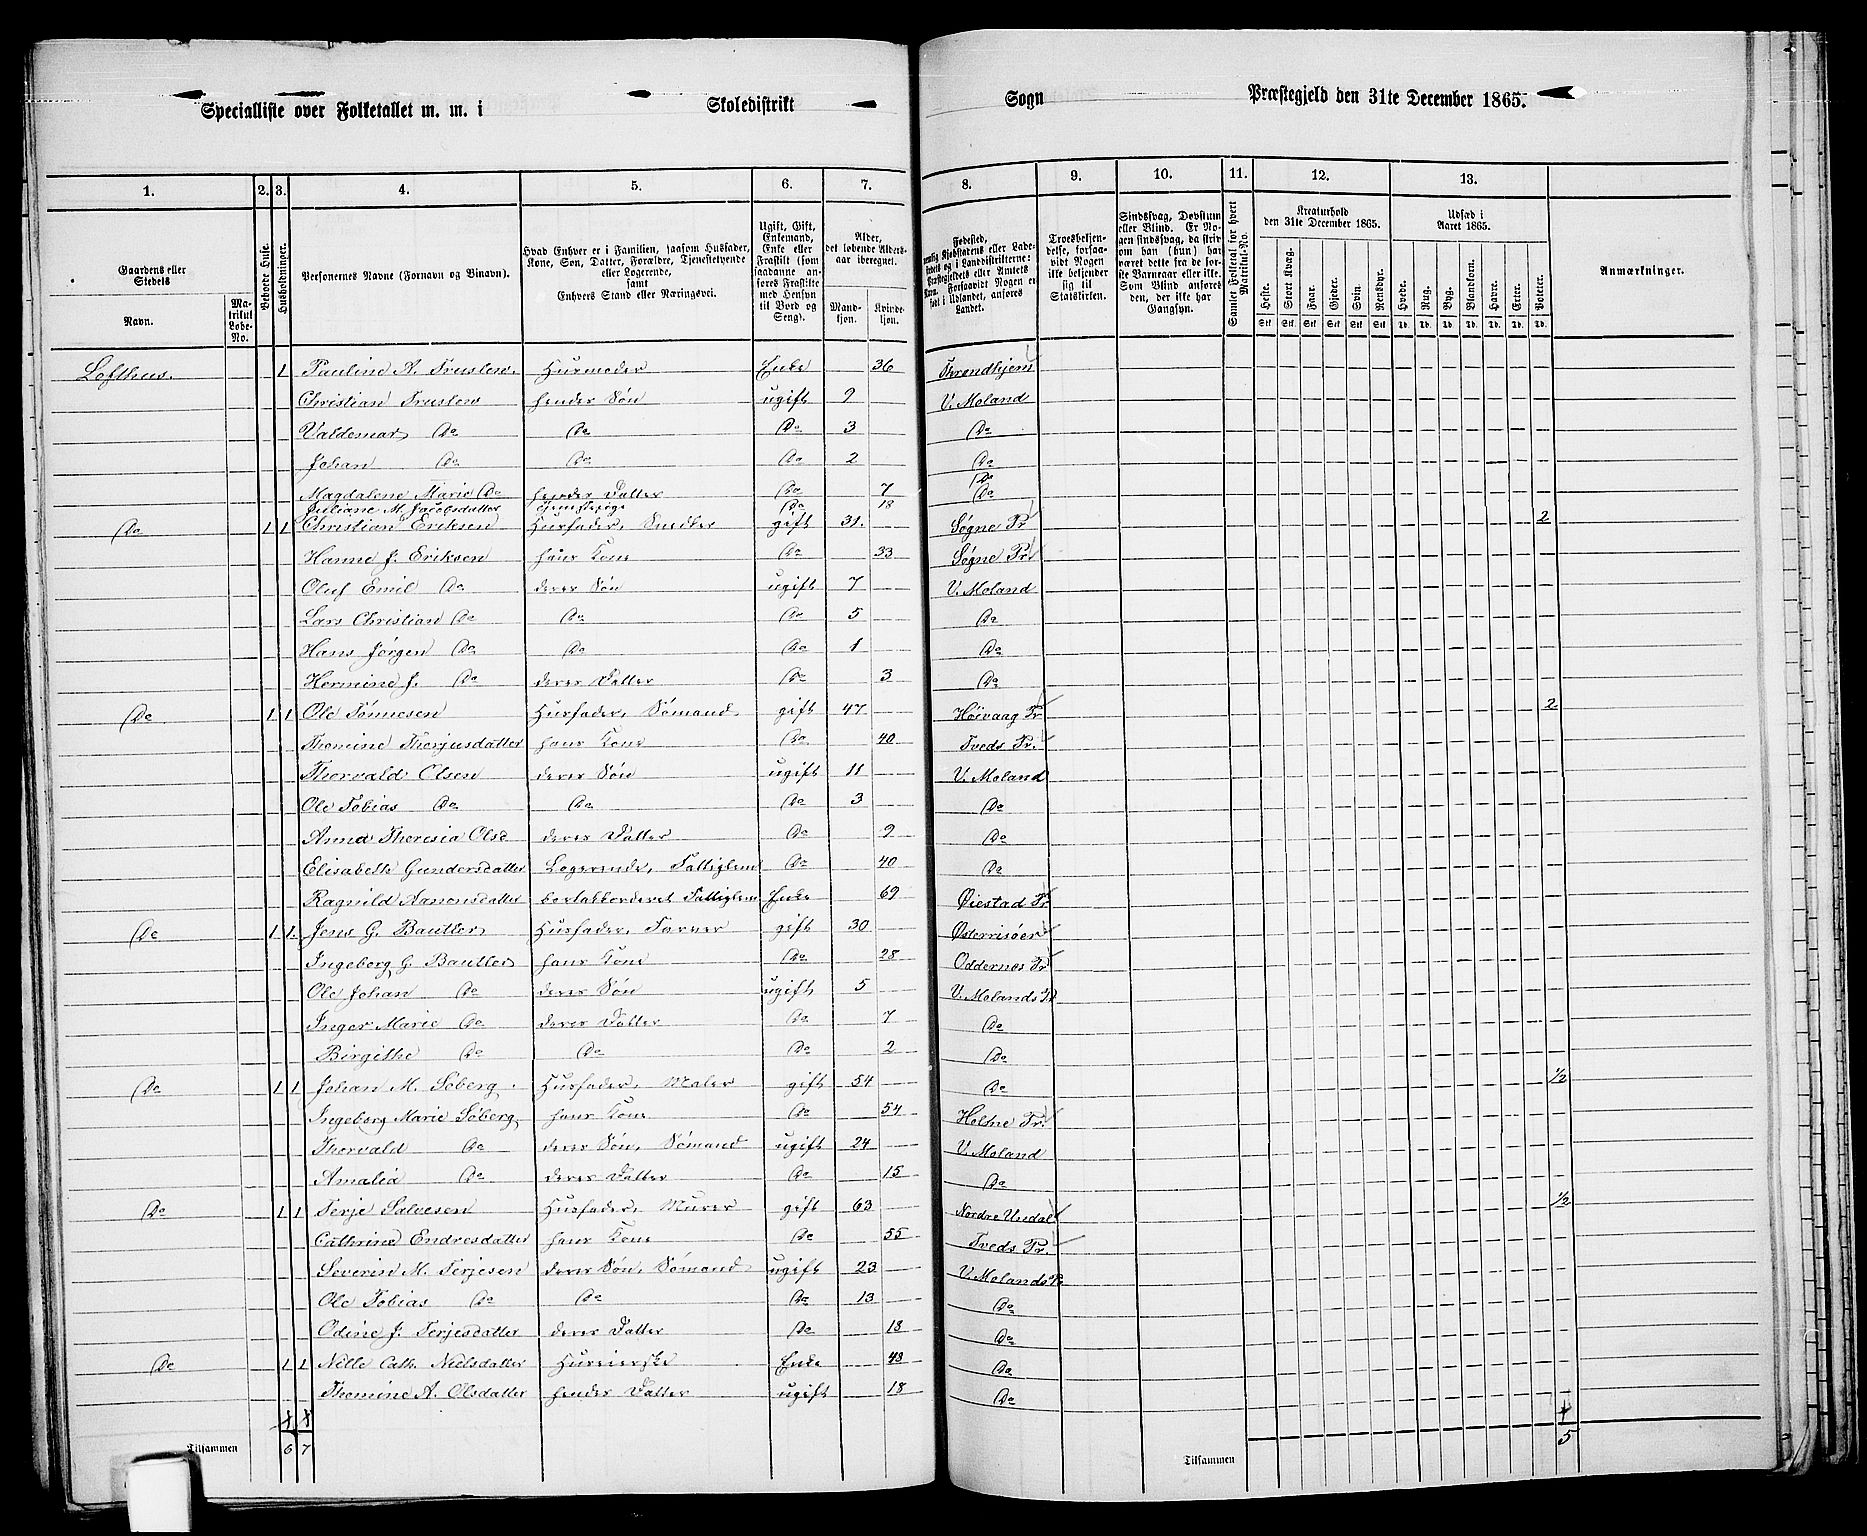 Specialliste over Folketallet m. m. i Skoledistrikt Sogn Præstegjeld den 31te December 1865.
1. 2. 3. 4. 5. 6. 7. 8. 9. 10. 11. 12. 13.
Gaardens eller Stedets Navn. Matrikul Løbe-No. Beboede Huse. Husholdninger. Personernes Navne (Fornavn og Binavn).
Hvad Enhver er i Familien, saasom Husfader, Kone, Søn, Datter, Forældre, Tjenestetyende eller Logerende, samt Enhvers Stand eller Næringsvei.
Ugift, Gift, Enkemand, Enke eller Fraskilt (som saadanne anføres Fraskilte med Hensyn til Bord og Seng).
Alder, det løbende Aldersaar iberegnet. Mandkjøn. Kvindekjøn.
Troesbekjendelse, forsaavidt Nogen ikke bekjender sig til Statskirken.
Sindssvag, Døvstum eller Blind. Er Nogen sindssvag, da skriv om han (hun) har været dette fra de første Barneaar eller ikke. Som Blind ansøres den, der ikke har Gangsyn.
Samlet Folketal for hvert Matrikuls-No.
Kreaturhold den 31te December 1865. Heste. Stort Kvæg. Faar. Gjeder. Svin. Rensdyr.
Udsæd i Aaret 1865. Hvede. Rug. Byg. Blandkorn. Havre. Erter. Poteter.
Anmærkninger.
Lofthus. 1 Pauline A. Truslew Husmoder Enke 36 Throndhjem
Christian Truslew hendes Søn ugift 9 V. Moland
Valdemar Do Do Do 3 Do
Johan Do Do Do 2 Do
Magdalene Marie Do hendes Datter Do 7 Do
Juliane M. Jacobsdatter Tjenestepige Do 18 Do
Do 1 1 Christian Eriksen Husfader, Snedker gift 31. Søgne Pr 2
Hanne J. Eriksen hans Kone Do 33 Søgne Pr.
Oluf Emil Do deres Søn ugift 7 V. Moland
Lars Christian Do Do Do 5 Do
Hans Jørgen Do Do Do 1 Do
Hermine J. Do deres Datter Do 3 Do
Do 1 1 Ole Tønnesen Husfader, Sømand gift 47 Høivaag Pr 2
Thomine Therjusdatter hans Kone Do 40 Tveds Pr.
Thorvald Olsen deres Søn ugift 11 V. Moland
Ole Tobias Do Do Do 3 Do
Anna Theresia Olsd deres Datter Do 9 Do
Elisabeth Gundersdatter Logerende, Fattiglem Do 40 Do
Ragnild Aanonsdatter bortakkorderet Fattiglem Enke 69 Øiestad Pr
Do 1 1. Jens G. Bautler Husfader, Farver gift 30 Østerrisøer
Ingeborg G. Bautler hans Kone Do 28 Oddernes Pr
Ole Johan Do deres Søn ugift 5 V. Molands Pr
Inger Marie Do deres Datter Do 7 Do
Birgithe Do Do Do 2 Do
Do 1 1 Johan M. Søberg Husfader, Maler gift 54 Do 1/2
Ingeborg Marie Søberg hans Kone Do 54 Holme Pr.
Thorvald Do deres Søn, Sømand ugift 24 V. Moland
Amalia Do deres Datter Do 15 Do
Do 1 1 Terje Salvesen Husfader, Murer gift 63 Nordre Undal 1/2
Cathrine Endresdatter hans Kone Do 55 Tveds Pr.
Severin M. Terjesen deres Søn, Sømand ugift 23 V. Molands Pr
Ole Tobias Do Do Do 13 Do
Odine J. Terjesdatter deres Datter Do 18 Do
Do 1 1 Nille Cath. Nielsdatter Huseierske Enke 48 Do
Thomine A. Olsdatter hendes Datter ugift 18 Do
Tilsammen 6 7 Tilsammen 5